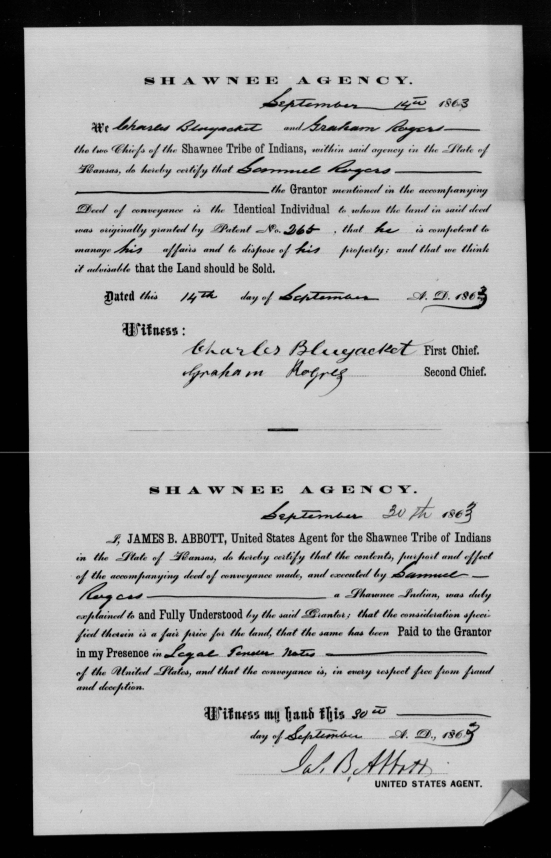 SHAWNEE AGENCY.
September 14th 1863
We Charles Bluejacket and Graham Rogers
the two Chiefs of the Shawnee Tribe of Indians, within said agency in the State of
Kansas, do hereby certify that Sammuel Rogers
the Grantor mentioned in the accompanying
Deed of conveyance is the Identical Individual to whom the land in said deed
was originally granted by Patent No. 265, that he is competent to
manage his affairs and to dispose of his property; and that we think
it advisable that the Land should be Sold.
Dated this 14th day of September A. D. 1863
Witness:
Charles Bluejacket First Chief.
Graham Rogres Second Chief.
SHAWNEE AGENCY.
September 30th 1863
I, JAMES B. ABBOTT, United States Agent for the Shawnee Tribe of Indians
in the State of Kansas, do hereby certify that the contents, purport and effect
of the accompanying deed of conveyance made, and executed by Samuel
Rogers a Shawnee Indian, was duly
explained to and Fully Understood by the said Grantor; that the consideration speci-
fied therein is a fair price for the land, that the same has been Paid to the Grantor
in my Presence in Legal Tender Notes
of the United States, and that the conveyance is, in every respect free from fraud
and deception.
Witness my hand this 30th
day of September A. D., 1863
Jas. B. Abbott
UNITED STATES AGENT.